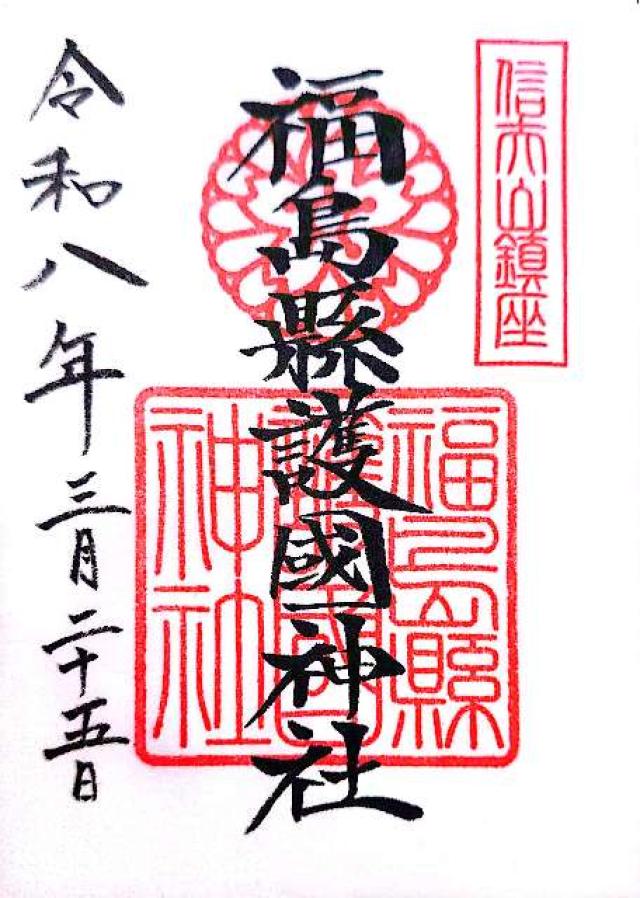 信夫山鎮座
福島縣護國神社
福島縣護國神社
令和八年三月二十五日